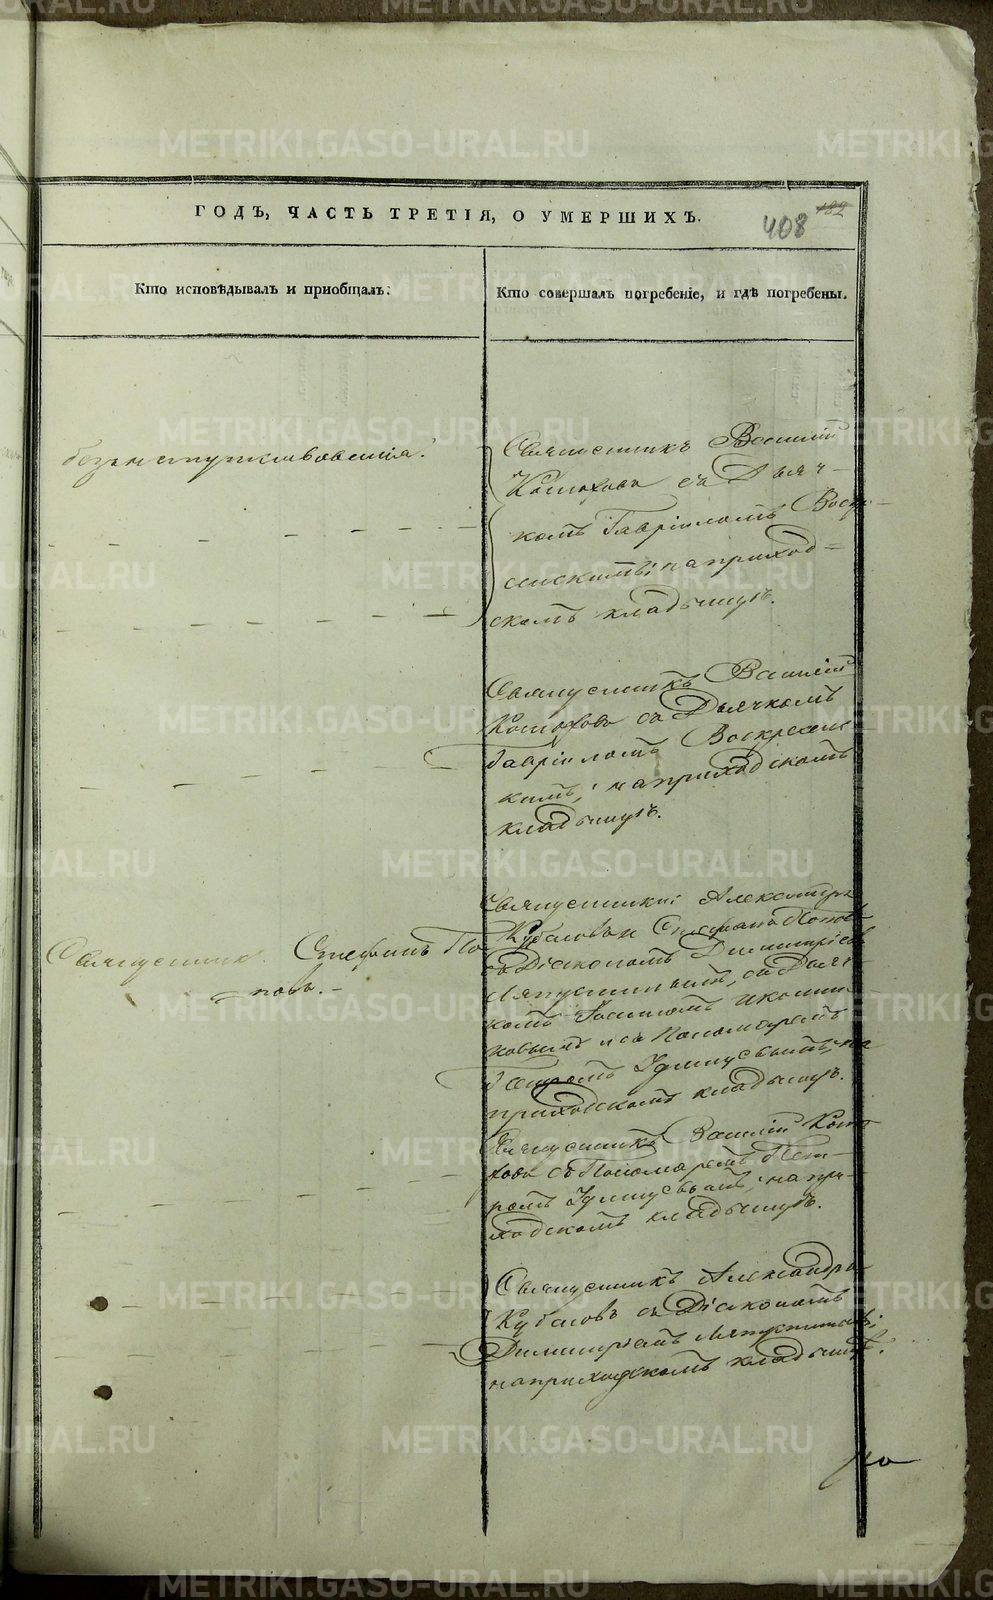 ГОДЪ, ЧАСТЬ ТРЕТІЯ, О УМЕРШИХЪ.
408
182
Кто исповѣдывалъ и приобщалъ.
Кто совершалъ погребеніе, и гдѣ погребены.
безъ напутствованія.
Священникъ Василій
съ Дьяч-
комъ Гавріиломъ Воскре-
сенскимъ; на приход-
скомъ кладбищѣ.
Священникъ Василій
съ Дьячкомъ
Гавріиломъ Воскресенс-
кимъ; на приходскомъ
кладбищѣ.
Священникъ Стефанъ По-
повъ.
Священники Александръ
Стефанъ Поповъ
съ Діакономъ Димитріемъ
Ляпустинымъ, съ Дьяч-
комъ
и съ Пономаремъ
Петромъ на
приходскомъ кладбищѣ.
Священникъ Василій
съ Пономаремъ Пет-
ромъ на при-
ходскомъ кладбищѣ.
Священникъ Александръ
съ Діакономъ
Димитріемъ Ляпустинымъ;
на приходскомъ кладбищѣ.
METRIKI.GASO-URAL.RU